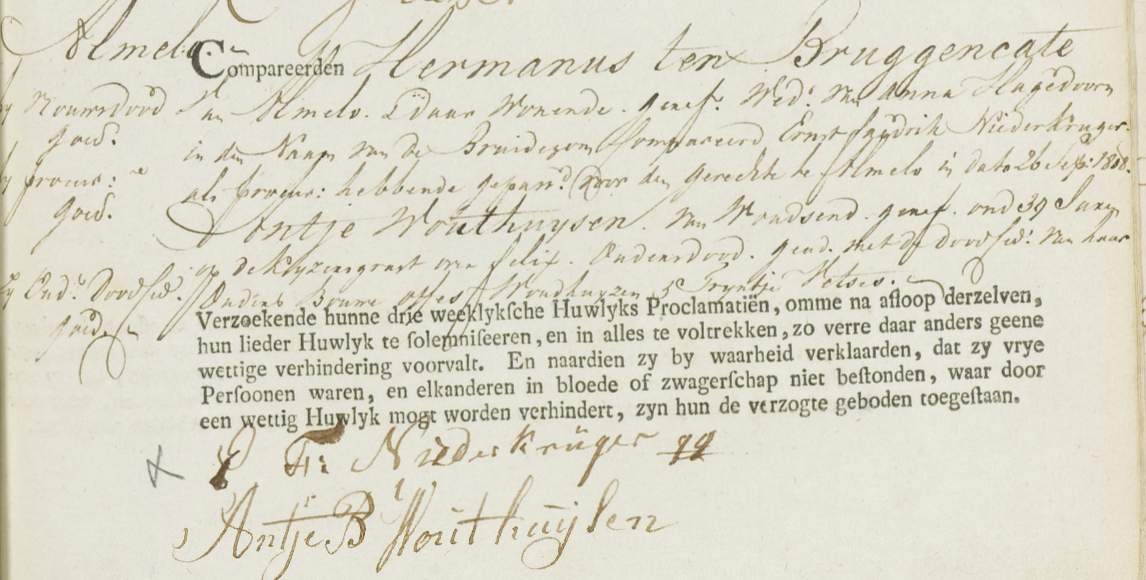 Almelo
Compareerden Hermanus ten Bruggencate
Rouwsdood van Almelo. & daar Wonende. geref. Wed.r van Anna Hagedoorn
goed. in den Naam van de Bruidegom Compareerd Ernst Niederkruger
procur: als procur: hebbende gepass.d voor den gerechte te Almelo in dato 26 Sep. 1808.
goed. Antje Wouthuysen. van Woudsend. geref. oud 39 Jaren
op de Keyzersgraft over Felix. Oudersdood. geads. met
Oud.s Doodced. Ouders Bouwe Wouthuyzen & Tryntje
goed
Verzoekende hunne drie weeklykſche Huwlyks Proclamatiën, omme na afloop derzelven,
hun lieder Huwlyk te ſolemniſeeren, en in alles te voltrekken, zo verre daar anders geene
wettige verhindering voorvalt. En naardien zy by waarheid verklaarden, dat zy vrye
Perſoonen waren, en elkanderen in bloede of zwagerſchap niet beſtonden, waar door
een wettig Huwlyk mogt worden verhindert, zyn hun de verzogte geboden toegeſtaan.
E Fr: Niederkrüger qq
Antje B Wouthuijsen